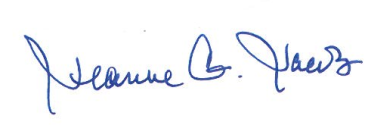 Jeanne B. Jacobs